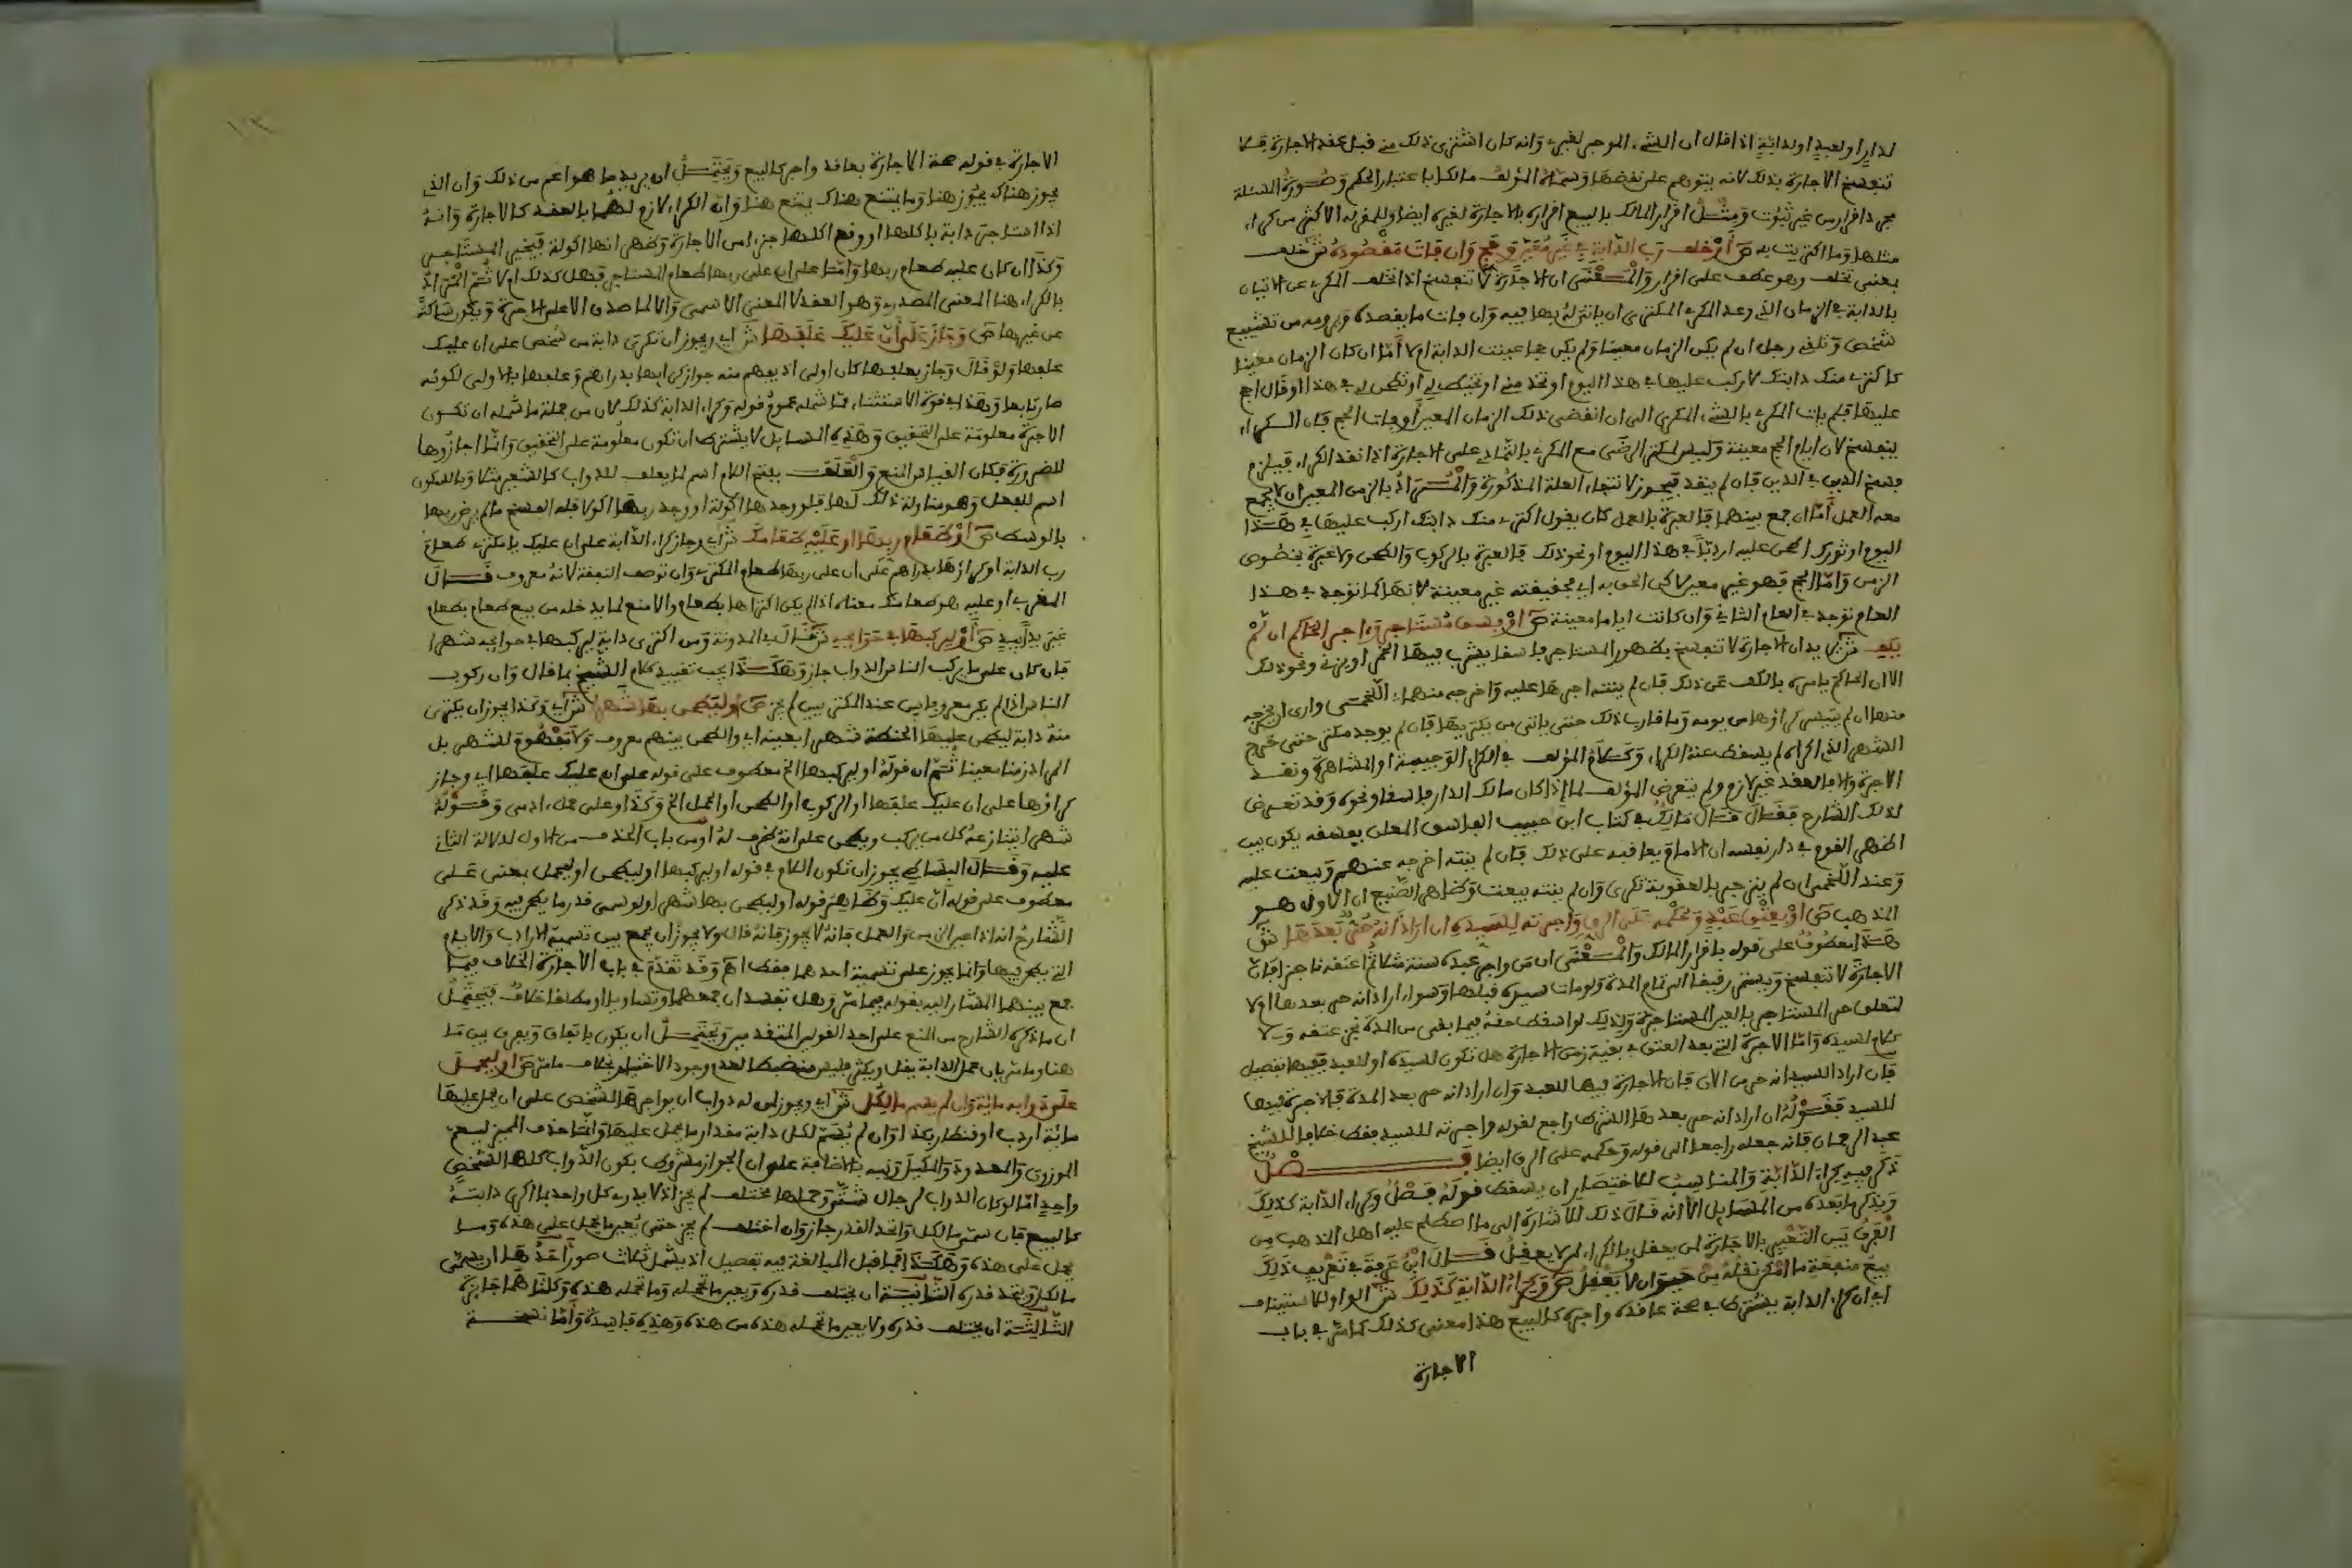 لدار او لعبد او لدابة اذا قال ان الشيء الموجر لغيره وانه كان اشترى ذلك من قبل عقد الاجارة فلا
تنفسخ الاجارة بذلك لانه يتوهم على نقضها وسماه المؤلف مالكا باعتبار الحكم وصورة المسئلة
مجرد اقرار من غير ثبوت ومثل اقرار المالك بالبيع اقراره بالاجارة لغيره ايضا وللمقر له الاكثر من كراء
مثلها وما اكتريت به ص او خلف رب الدابة في غير معين وحج وان فات مقصوده ش خلف
بمعنى تخلف وهو عطف على اقرار والمعنى ان الاجارة لا تنفسخ اذا تخلف المكري عن الاتيان
بالدابة في الزمان الذي وعد المكري المكتري ان ياتي له بها فيه وان فات ما يقصده ويرومه من تشييع
شخص وتلقي رجل ان لم يكن الزمان معينا ولم يكن حجا عينت الدابة ام لا اما ان كان الزمان معينا
كاكتري منك دابتك لاركب عليها في هذا اليوم او تخدمني او تخيط لي او تطحن لي في هذا او قال احج
عليها فلم يات المكري بالشيء المكرى الى ان انقضى ذلك الزمان المعين او فات الحج فان الكراء
ينفسخ لان ايام الحج معينة وليس لمكتر الرضى مع المكري بالتمادي على الاجارة اذا نقد الكراء فيلزم
فسخ الدين في الدين فان لم ينقد فيجوز لانتفاء العلة المذكورة والمراد بالزمن المعين ان لا يجمع
معه العمل اما ان جمع بينهما فالعبرة بالعمل كان يقول اكتري منك دابتك اركب عليها في هذا
اليوم او ثورك اطحن عليه اردبا في هذا اليوم او نحو ذلك فالعبرة بالركوب والطحن ولا عبرة بخصوص
الزمن واما الحج فهو غير معين لا كن الحق به اي بحقيقته غير معينة لانها كما توجد في هذا
العام توجد في العام الثاني وان كانت اياما معينة ص او فسق مستاجر واجر الحاكم ان لم
يكف ش يريد ان الاجارة لا تنفسخ بظهور المستاجر فاسقا يشرب فيها الخمر او يزني ونحو ذلك
الا ان الحاكم يامره بالكف عن ذلك فان لم ينته اجرها عليه واخرجه منها اللخمي وارى ان يخرجه
منها ان لم يتيسر كراؤها من يومه وما قارب ذلك حتى ياتي من يكتريها فان لم يوجد مكتر حتى خرج
الشهر الذي اكراه لم يسقط عنه الكراء وكلام المؤلف في الكل الوجيبة او المشاهرة ونقد
الاجرة والا فالعقد غير لازم ولم يتعرض المؤلف لما اذا كان مالك الدار فاسقا ونحوه وقد تعرض
لذلك الشارح فقال قال مالك في كتاب ابن حبيب الفاسق المعلن بفسقه يكون بين
اظهر القوم في دار نفسه ان الامام يعاقبه على ذلك فان لم ينته اخرجه عنهم وبيعت عليه
وعند اللخمي ان لم ينزجر بالعقوبة تكرى وان لم ينته بيعت وظاهر الصنيع ان الاول هو
المذهب ص او بعتق عبد وحكمه على الرق واجرته للسيد ان اراد انه حر بعدها ش
هذا معطوف على قوله باقرار المالك والمعنى ان من واجر عبده سنة مثلا ثم اعتقه ناجزا فان
الاجارة لا تنفسخ ويستمر رقيقا الى تمام المدة ولو مات سيده قبلها وسواء اراد انه حر بعدها او لا
لتعلق حق المستاجر بالعين المستاجرة ولذلك لو اسقط حقه فيما بقي من المدة نجز عتقه ولا
كلام للسيد واما الاجرة التي بعد العتق في بقية زمن الاجارة هل تكون للسيد او للعبد ففيها تفصيل
فان اراد السيد انه حر من الان فان الاجارة فيها للعبد وان اراد انه حر بعد المدة فالاجرة فيها
للسيد فقوله ان اراد انه حر بعدها الشرط راجع لقوله واجرته للسيد فقط خلافا للشيخ
عبد الرحمان فانه جعله راجعا الى قوله وحكمه على الرق ايضا فصل
ذكر فيه كراء الدابة والمناسب للاختصار ان يسقط قوله فصل وكراء الدابة كذلك
ويذكر ما بعده من المسايل الا انه قال ذلك للاشارة الى ما اصطلح عليه اهل المذهب من
الفرق بين التعبير بالاجارة لمن يعقل وبالكراء لمن لا يعقل قال ابن عرفة في تعريف ذلك
بيع منفعة ما امكن نقله من حيوان لا يعقل ص وكراء الدابة كذلك ش الواو للاستيناف
اي ان كراء الدابة يشترط في صحة عاقده واجره كالبيع هذا معنى كذلك كما مر في باب
الاجارة
الاجارة في قوله صحة الاجارة بعاقد واجر كالبيع ويحتمل ان يريد ما هو اعم من ذلك وان الذي
يجوز هناك يجوز هنا وما يمتنع هناك يمتنع هنا وان الكراء لازم لهما بالعقد كالاجارة وانه
اذا استاجر دابة باكلها او وقع اكلها جزءا من الاجارة وظهر انها اكولة فيخير المستاجر
وكذا ان كان عليه طعام ربها واما على ان على ربها طعام المستاجر فهل كذلك ام لا ثم المراد
بالكراء هنا المعنى المصدري وهو العقد لا المعنى الاسمي والا لما صدق الا على الاجرة ويكون ساكتا
عن غيرها ص وجاز على ان عليك علفها ش اي ويجوز ان تكتري دابة من شخص على ان عليك
علفها ولو قال وجاز بعلفها كان اولى اذ يفهم منه جواز كرايها بدراهم وعلفها بالاولى لكونه
صار تابعا وهذا في قوة الاستثناء مما شمله عموم قوله وكراء الدابة كذلك لان من جملة ما شمله ان تكون
الاجرة معلومة على التحقيق وهذه المسايل لا يشترط ان تكون معلومة على التحقيق وانما اجازوها
للضرورة فكان القياس المنع والعلف بفتح اللام اسم لما يعلف للدواب كالشعير مثلا وبالسكون
اسم للفعل وهو مناولة ذلك لها فلو وجدها اكولة او وجد ربها اكولا فله الفسخ ما لم يرض ربها
بالوسط ص او طعام ربها او عليه طعامك ش اي وجاز كراء الدابة على ان عليك يا مكتري طعام
رب الدابة او كراؤها بدراهم على ان على ربها طعام المكتري وان لم توصف النفقة لانه معروف قال
المغربي او عليه هو طعامك معناه اذا لم يكن اكتراها بطعام والا منع لما يدخله من بيع طعام بطعام
غير يدا بيد ص او ليركبها في حوايجه ش قال في المدونة ومن اكترى دابة ليركبها في حوايجه شهرا
فان كان على ما يركب الناس الدواب جاز وهكذا يجب تقييد كلام الشيخ بما قال وان ركوب
الناس اذا لم يكن معروفا بين عند المكترين لم يجز ص وليطحن بها شهرا ش اي وكذا يجوز ان يكتري
منه دابة ليطحن عليها الحنطة شهرا بعينه اي والطحن بينهم معروف ولا مفهوم للشهر بل
المراد زمنا معينا ثم ان قوله او ليركبها الخ معطوف على قوله على ان عليك علفها اي وجاز
كراؤها على ان عليك علفها او الركوب او الطحن او الحمل الخ وكذا او على حمل ادمي وقوله
شهرا يتنازعه كل من يركب ويطحن على انه ظرف له او من باب الحذف من الاول لدلالة الثاني
عليه وقال البساطي يجوز ان تكون اللام في قوله او ليركبها او ليطحن او ليحمل بمعنى على
معطوف على قوله ان عليك وظاهر قوله او ليطحن بها شهرا ولو سمى قدر ما يطحن فيه وقد ذكر
الشارح انه اذا عين الزمن والعمل فانه لا يجوز فانه قال ولا يجوز ان يجمع بين تسمية الارادب والايام
التي يطحن فيها وانما يجوز على تسمية احدهما فقط اه وقد تقدم في باب الاجارة الخلاف فيما
جمع بينهما المشار اليه بقوله فيما مر وهل تفسد ان جمعهما وتساويا او مطلقا خلاف فيحتمل
ان ما ذكره الشارح من المنع على احد القولين المتقدمين ويحتمل ان يكون باتفاق ويفرق بين ما
هنا وما مر بان عمل الدابة يقل ويكثر فليس منضبطا لعدم وجود الاختيار بخلاف ما مر ص او ليحمل
على دوابه ماية وان لم يسم ما لكل ش اي ويجوز لمن له دواب ان يواجرها لشخص على ان يحمل عليها
مائة اردب او قنطار بكذا وان لم يسم لكل دابة مقدار ما يحمل عليها وانما حذف المميز ليعم
الموزون والمعدود والمكيل ونبه بالاضافة على ان الجواز مشروط بكون الدواب كلها لشخص
واحد اما لو كان الدواب لرجال شتى وحملها مختلف لم يجز اذ لا يدري كل واحد بما اكرى دابته
كالبيع فان سمى ما لكل واتحد القدر جاز وان اختلف لم يجز حتى يعين ما يحمل على هذه وما
يحمل على هذه وهكذا فما قبل المبالغة فيه تفصيل اذ يشمل ثلاث صور احدها ان يسمى
ما لكل ويتحد قدره الثانية ان يختلف قدره ويعين ما تحمله وما تحمله هذه وكلتاهما جايزة
الثالثة ان يختلف قدره ولا يعين ما تحمله هذه من هذه وهذه فاسدة واما نسخة